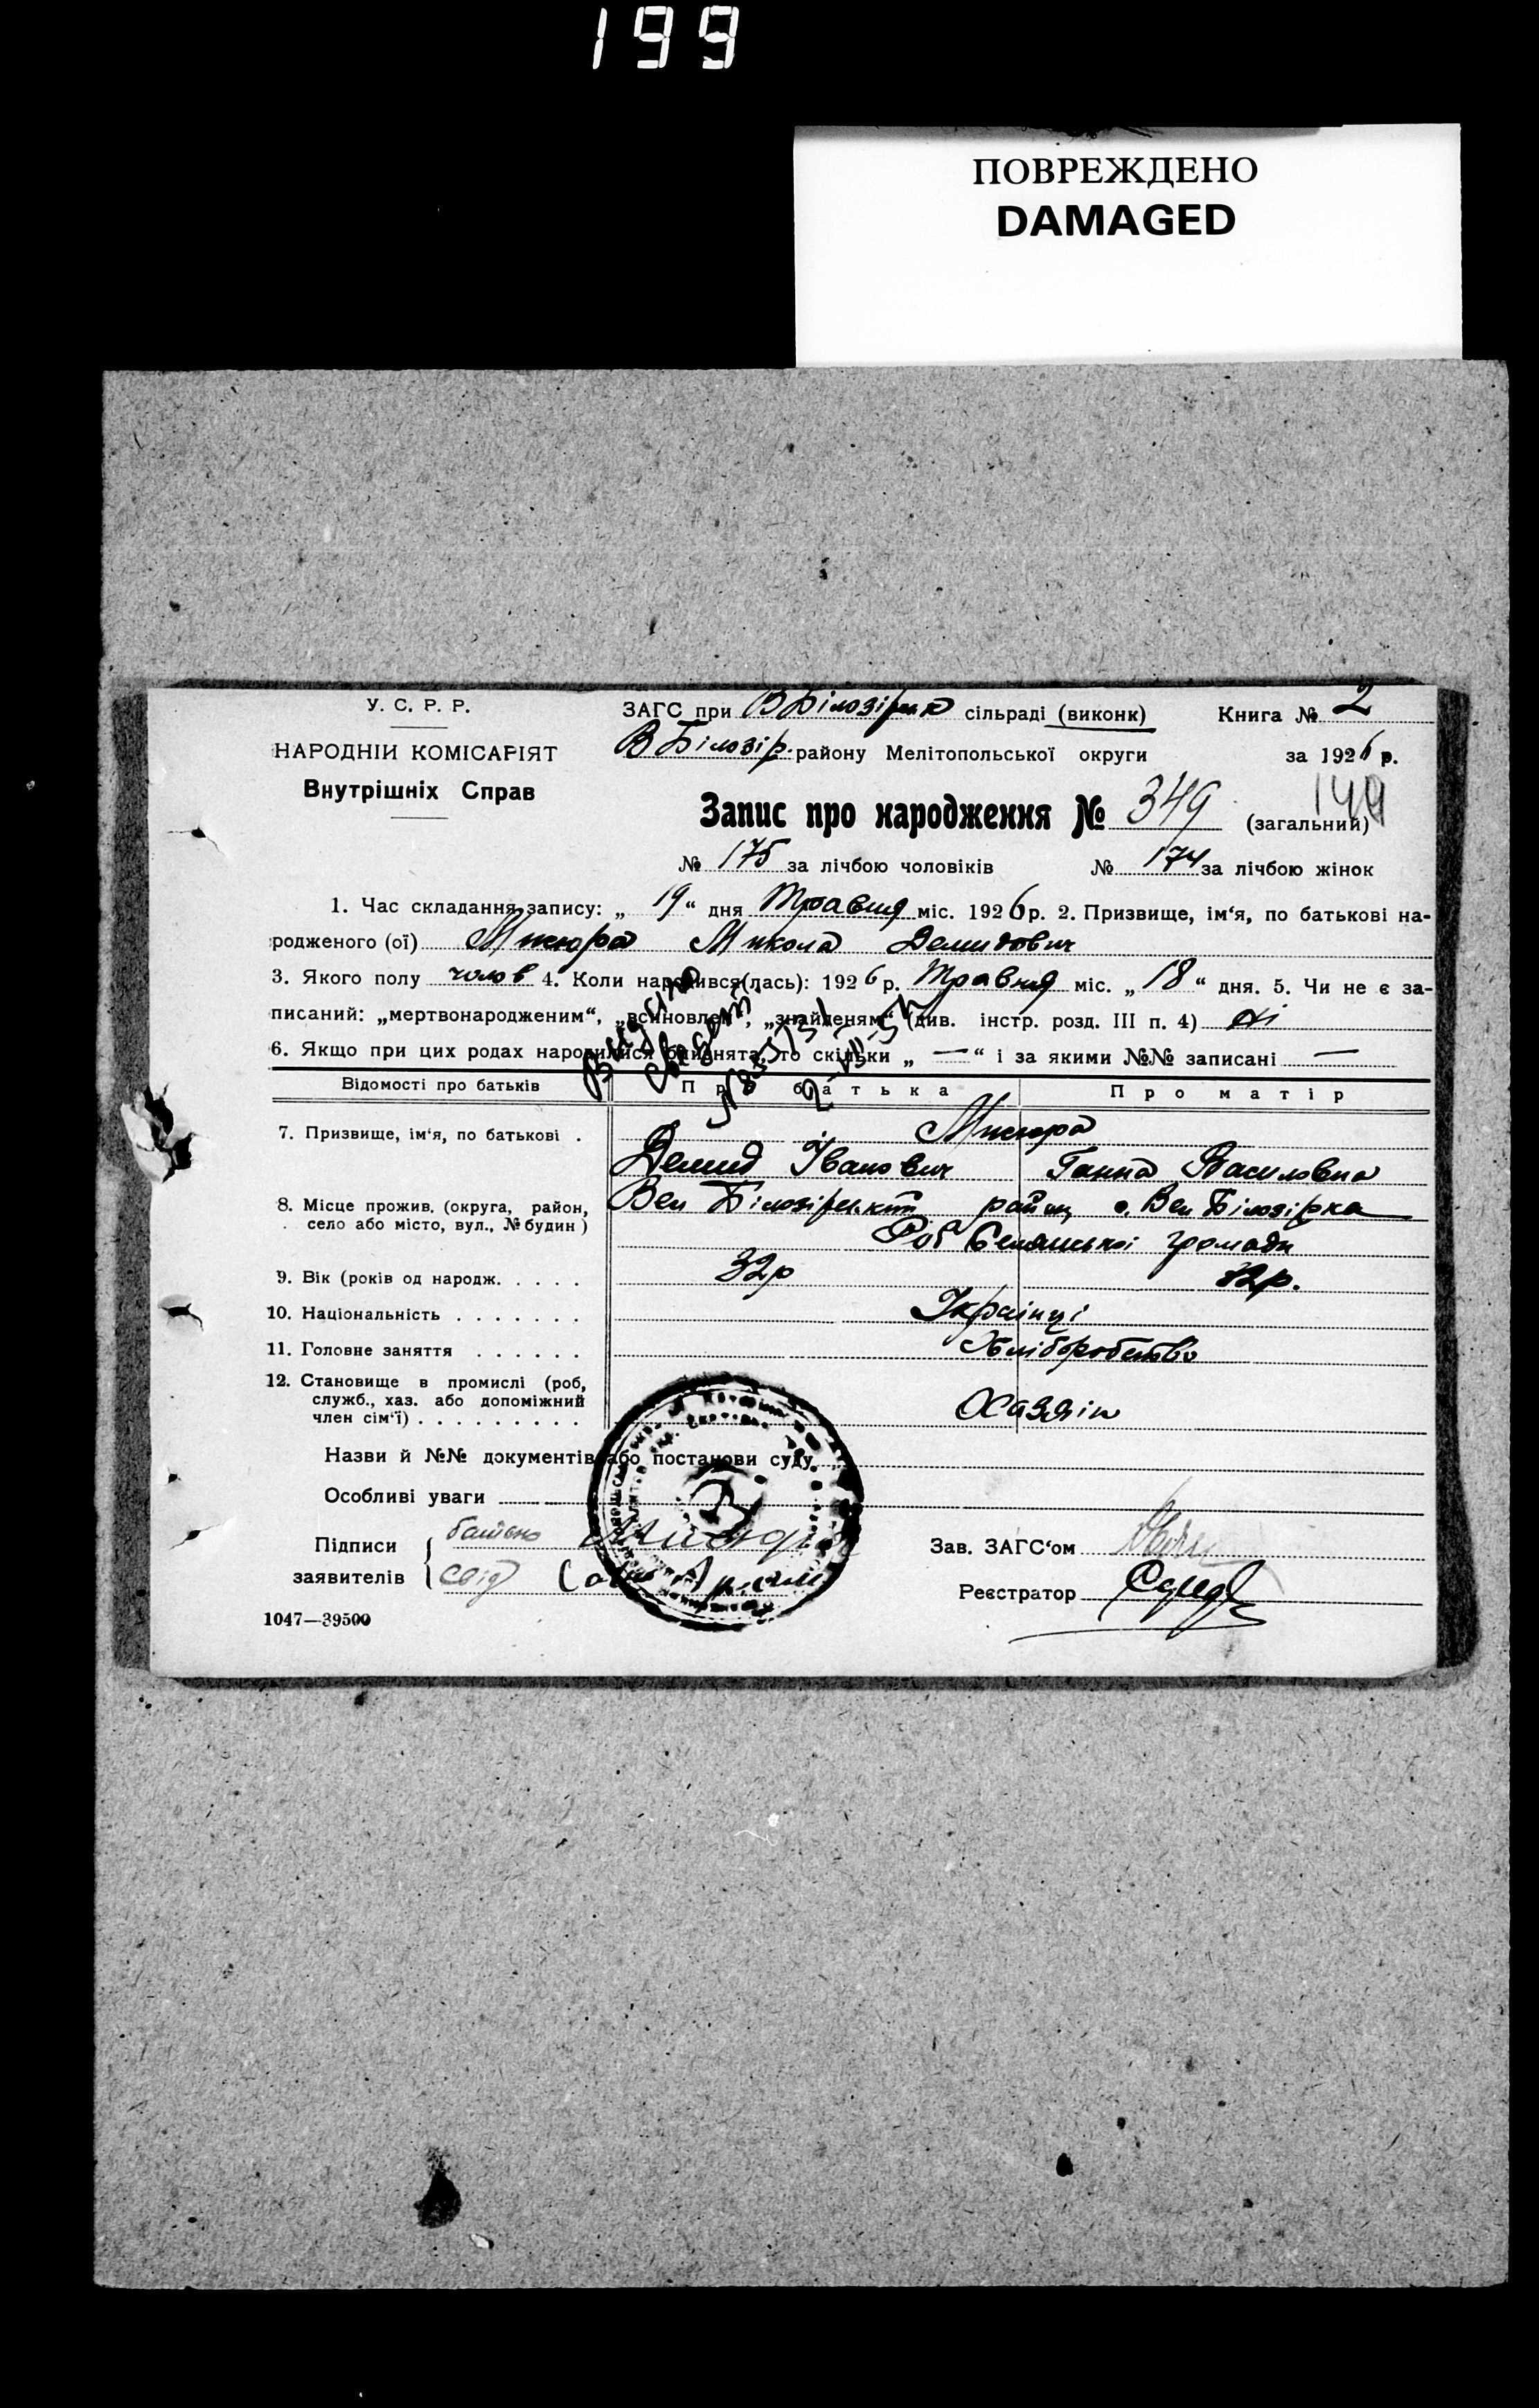 199
ПОВРЕЖДЕНО
DAMAGED
У. С. Р. Р.
НАРОДНІЙ КОМІСАРІЯТ
Внутрішніх Справ
ЗАГС при В Білозірськ сільраді (виконк)
Книга № 2
В Білозір. району Мелітопольської округи
за 1926 р.
Запис про народження № 349 (загальний)
149
№ 175 за лічбою чоловіків № 174 за лічбою жінок
1. Час складання запису: „ 19 “ дня Травня міс. 1926 р. 2. Призвище, ім‘я, по батькові на-
родженого (ої) Микола Демидович
3. Якого полу чолов 4. Коли народився(лась): 1926 р. Травня міс. „ 18 “ дня. 5. Чи не є за-
писаний: „мертвонародженим“, „всиновлен“, „знайденям“ (див. інстр. розд. III п. 4) Ні
6. Якщо при цих родах народилися близнята, то скільки „ — “ і за якими №№ записані —
Відомості про батьків
Про батька
Про матір
7. Призвище, ім‘я, по батькові .
Демид Іванович
Ганна Василовна
8. Місце прожив. (округа, район,
село або місто, вул., № будин )
Вел Білозірський район с. Вел Білозірка
Селянської громади
9. Вік (років од народж. . . . .
32р
32р.
10. Національність . . . . . . .
Українці
11. Головне заняття . . . . . .
Хліборобство
12. Становище в промислі (роб,
служб., хаз. або допоміжний
член сім‘ї) . . . . . . . . .
Хазяїн
Назви й №№ документів або постанови суду
Особливі уваги
Підписи
заявителів
батько
свід
Зав. ЗАГС‘ом
Реєстратор
1047—39500